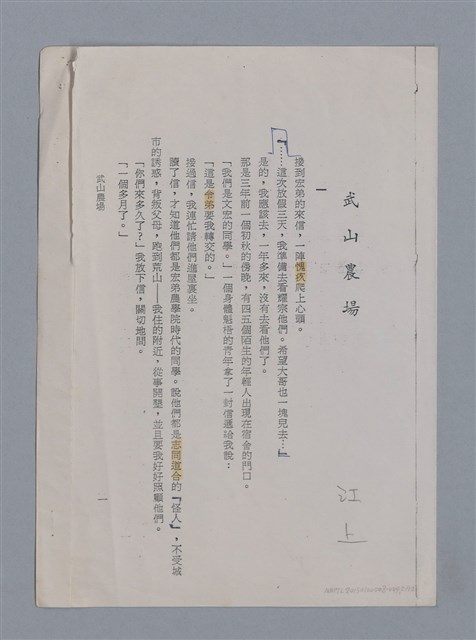 武山農場
江上
一
接到宏弟的來信，一陣愧疚爬上心頭。
「……這次放假三天，我準備去看耀宗他們。希望大哥也一塊兒去…」
是的，我應該去，一年多來，沒有去看他們了。
那是三年前一個初秋的傍晚，有四五個陌生的年輕人出現在宿舍的門口。
「我們是文宏的同學。」一個身體魁梧的青年拿了一封信遞給我說：
「這是令弟要我轉交的。」
接過信，我連忙請他們進屋裏坐。
讀了信，才知道他們都是宏弟農學院時代的同學。說他們都是志同道合的『怪人』，不受城
市的誘惑，背叛父母，跑到荒山——我住的附近，從事開墾，並且要我好好照顧他們。
「你們來多久了？」我放下信，關切地問。
「一個多月了。」
武山農場
一